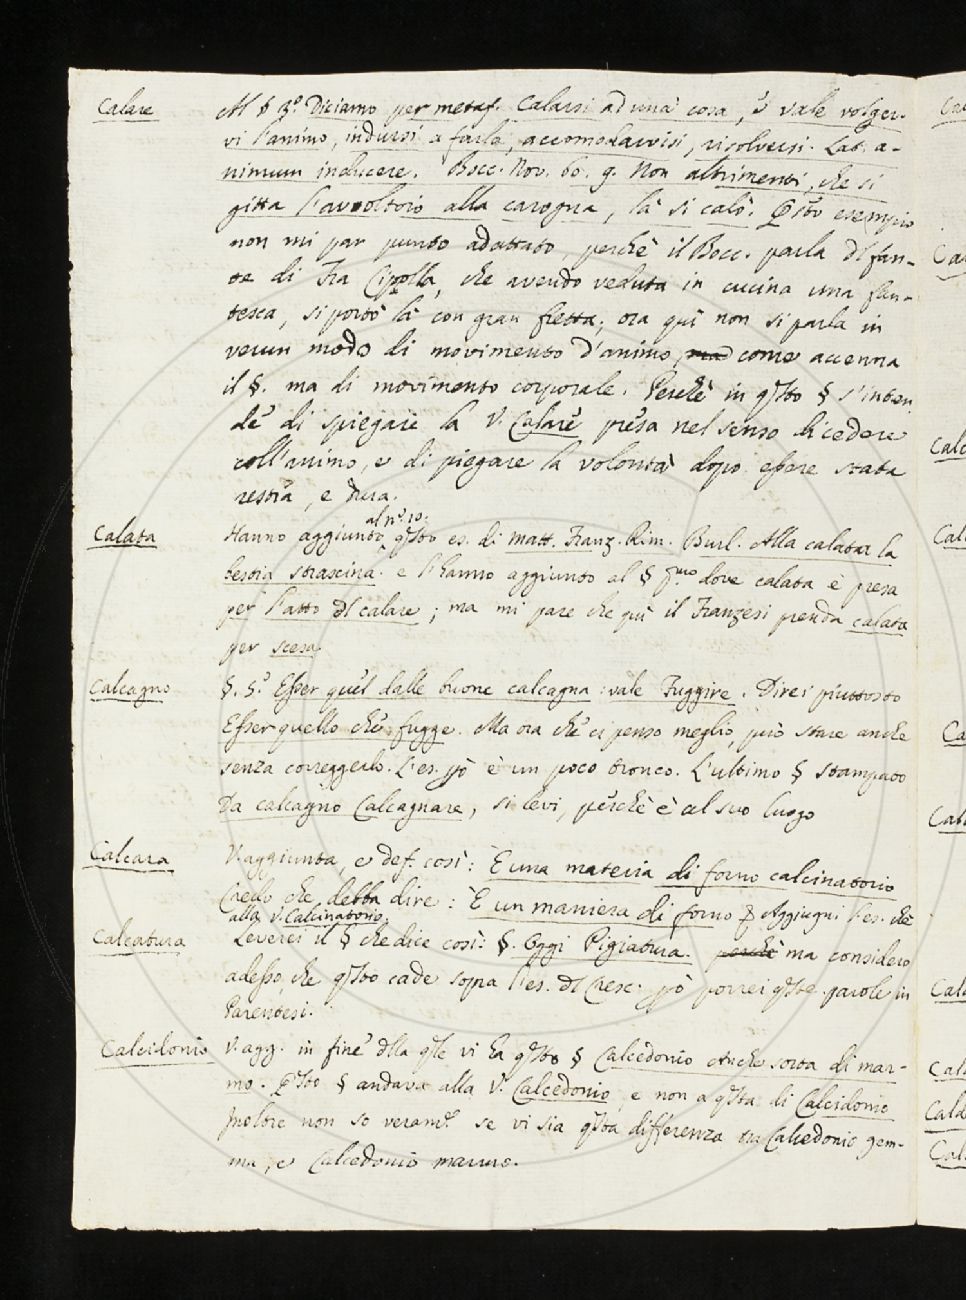 Calare
Al § 3.º Diciamo per metaf. Calarsi ad una cosa, e vale volger-
vi l'animo, indursi a farla, accomodarvisi, risolversi. Lat. a-
nimum inducere. Bocc. Nov. 60. 9. Non altrimenti, che si
gitta l'avoltoio alla carogna, là si calò. Qsto esempio
non mi par punto adattato, perchè il Bocc. parla dl fan-
te di Fra Cipolla, che avendo veduta in cucina una fan-
tesca, si portò là con gran fretta; ora quì non si parla in
verun modo di movimento d'animo, ma come accenna
il §. ma di movimento corporale. Perchè in qsto § s'inten
de di spiegare la V. Calare presa nel senso di cedere
coll'animo, e di piegare la volontà dopo essere stata
restia, e dura.
Calata
al nº. 10.
Hanno aggiunto qsto es. di Matt. Franz. Rim. Burl. Alla calatar la
bestia strascina. e l'hanno aggiunto al § pmo dove calata è presa
per l'atto dl calare; ma mi pare che quì il Franzesi prenda calata
per scesa.
Calcagno
§. 5.º Esser quel dalle buone calcagna: vale Fuggire. Direi piuttosto
Esser quello che fugge. Ma ora che ci penso meglio, può stare anche
senza correggerlo. L'es. pò è un poco tronco. L'ultimo § stampato
Da calcagno Calcagnare, si levi, perchè è al suo luogo
Calcara
V. aggiunta, e def. così: È una materia di forno calcinatorio
Credo che debba dire: È un maniera di forno & Aggiugni l'es. che
alla V. Calcinatorio.
Calcatura
Leverei il § che dice così: §. Oggi Pigiatura. perchè ma considero
adesso, che qsto cade sopra l'es. dl Cresc. pò porrei qste parole in
Parentesi.
Calcidonio
V. agg. in fine dlla qle vi ha qsto § Calcedonio Anche sorta di mar-
mo. Qsto § andava alla V. Calcedonio, e non a qsta di Calcidonio
Inoltre non so veramᵉ. se vi sia qsta differenza tra Calcedonio gem-
ma, e Calcedonio marmo.